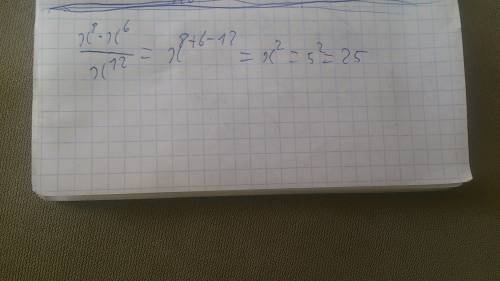 x⁸·x⁶/x¹² = x⁸⁺⁶⁻¹² = x² = 5² = 25